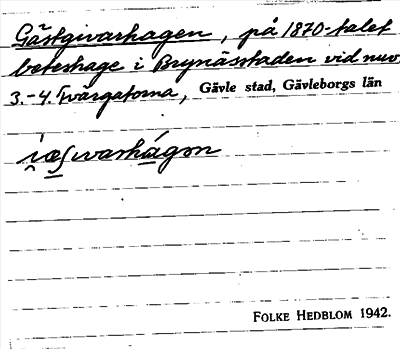 Gästgivarhagen, på 1870-talet
beteshage i Brynässtaden vid nuv.
3.-4. Tvärgatorna, Gävle stad, Gävleborgs län
Folke Hedblom 1942.